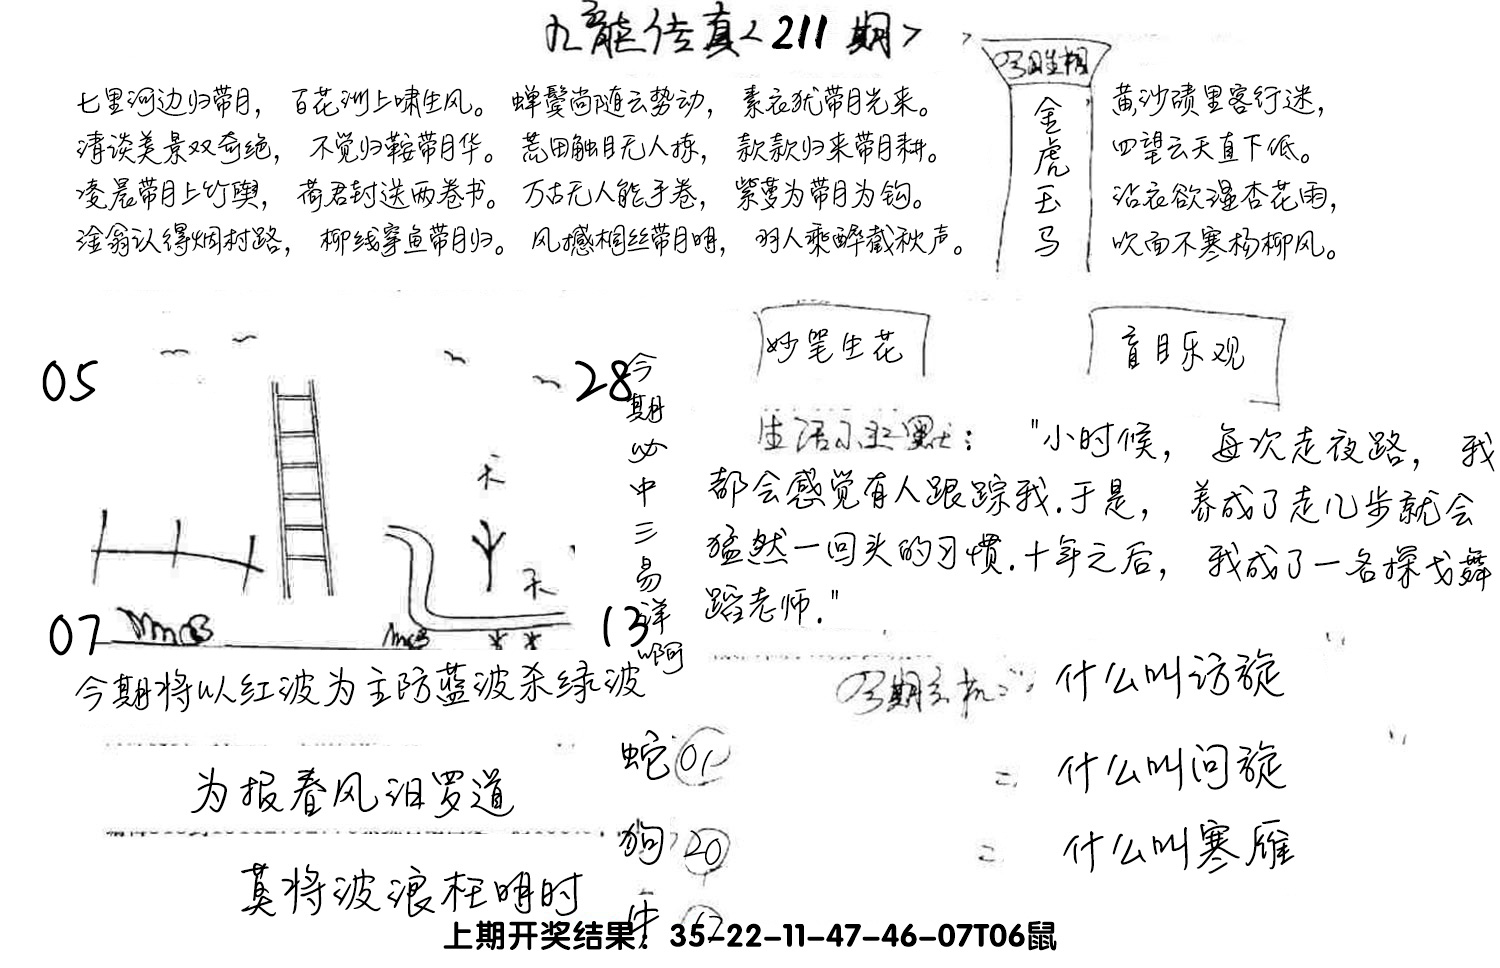 九龍传真<211期>
今期生相
金虎玉马
七里河边归带月，百花洲上啸生风。蝉鬓尚随云势动，素衣犹带月光来。
清谈美景双奇绝，不觉归鞍带月华。荒田触目无人拣，款款归来带月耕。
凌晨带月上竹舆，荷君封送两卷书。万古无人能手卷，紫萝为带月为钩。
淦翁认得烟村路，柳线穿鱼带月归。风撼桐丝带月明，羽人乘醉截秋声。
黄沙碛里客行迷，
四望云天直下低。
沾衣欲湿杏花雨，
吹面不寒杨柳风。
05
28
07
13
禾
禾
今期必中三易详啊
今期将以红波为主防蓝波杀绿波
为报春风汨罗道
莫将波浪枉明时
妙笔生花
盲目乐观
生活小幽默："小时候，每次走夜路，我
都会感觉有人跟踪我.于是，养成了走几步就会
猛然一回头的习惯.十年之后，我成了一名探戈舞
蹈老师."
今期玄机：什么叫访旋
=什么叫问旋
=什么叫寒雁
蛇 01
狗 20
牛
上期开奖结果：35-22-11-47-46-07T06鼠